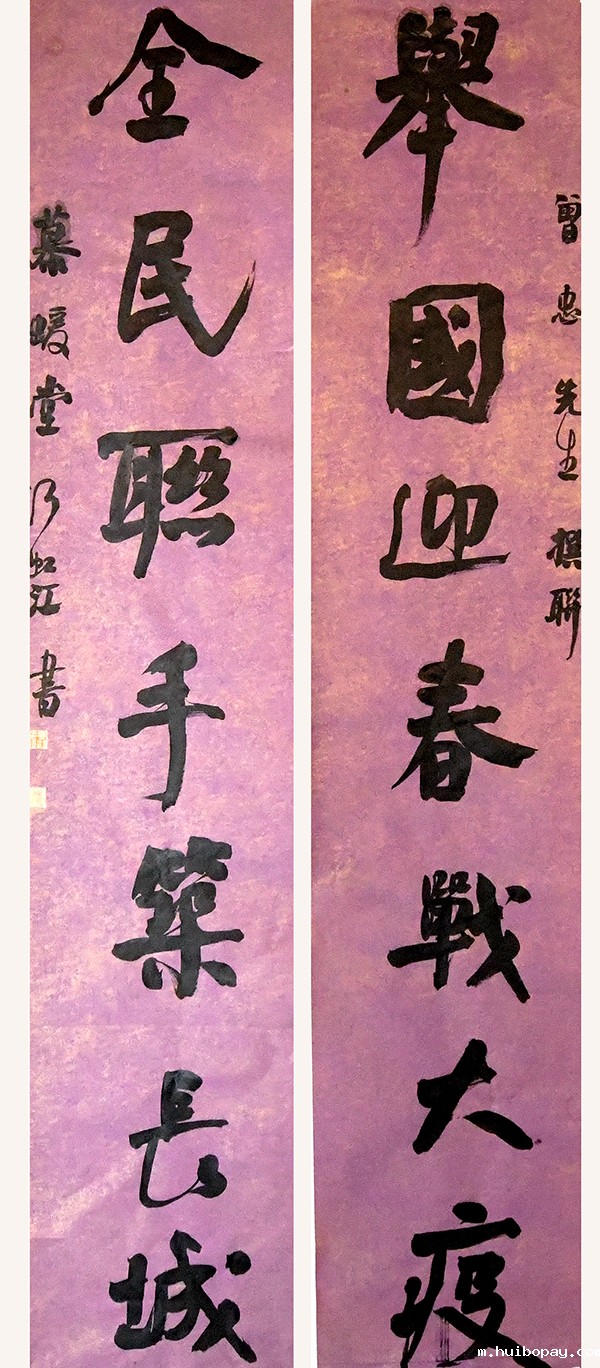 舉國迎春戰大疫
曾忠先生撰聯
全民聯手築長城
慕暖堂 江書
m.huibopay.com